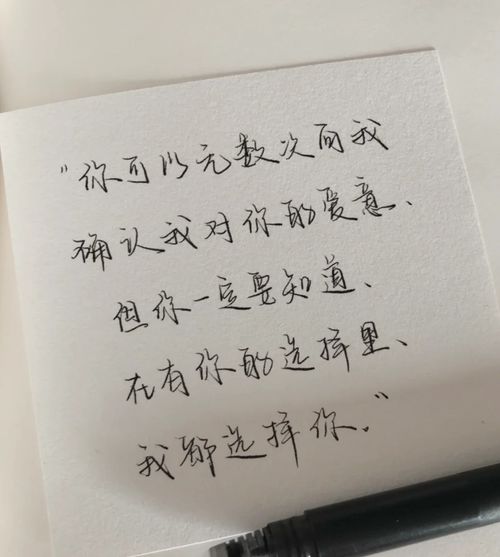 "你可以无数次向我
确认我对你的爱意、
但你一定要知道、
在有你的选择里、
我都选择你."